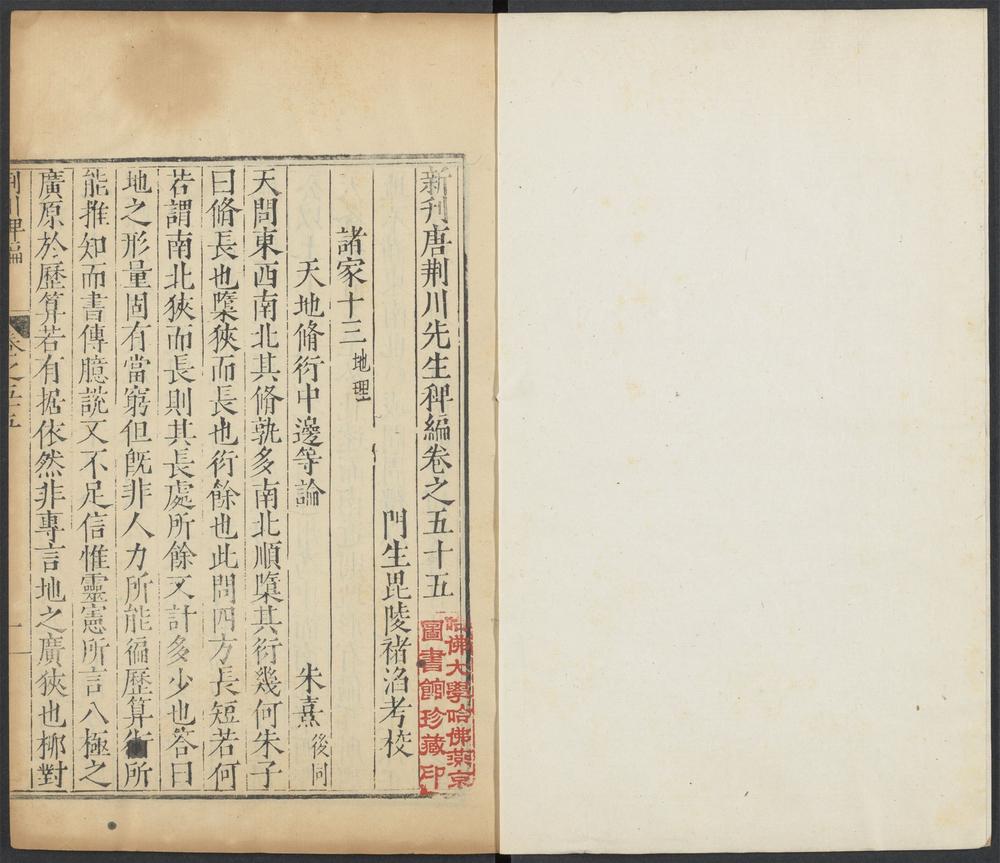 新刋唐荆川先生稗編卷之五十五
門生毘陵禇㳙考校
諸家十三地理
天地脩衍中邊等論
朱熹後同
天問東西南北其脩孰多南北順橢其衍幾何朱子
曰脩長也橢狹而長也衍餘也此問四方長短若何
若謂南北狹而長則其長處所餘又計多少也答曰
地之形量固有當窮但旣非人力所能徧歷算術所
能推知而書傳臆說又不足信惟靈憲所言八極之
廣原於歷算若有据依然非專言地之廣狹也栁對
荆川稗編
卷之五十五
一
哈佛大學哈佛燕京
圖書館珍藏印